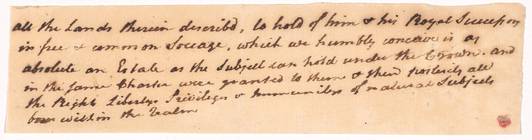 all the Lands therein describ'd, to hold of him & his Royal Successors
in free & common Soccage, which we humbly conceive is as
absolute an Estate as the Subject can hold under the Crown. and
in the same Charter were granted to them & their posterity all
the Rights Libertys Priviledges & Immunities of natural Subjects
born within the Realm